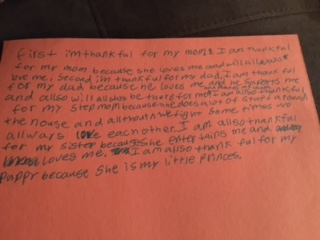 first im thankful for my mom. I am thankful
for my mom because she loves me and will allways
love me. Second im thankful for my dad. I am thankful
for my dad because he loves me and he
and allso will allways be there for me. I am allso thankful
for my step mom because she does alot of stuff around
the house and allthough we fight some times we
allways love each other. I am allso thankful
for my sister because she entertains me and
loves me. I am also thankful for my
puppy because she is my little princes.